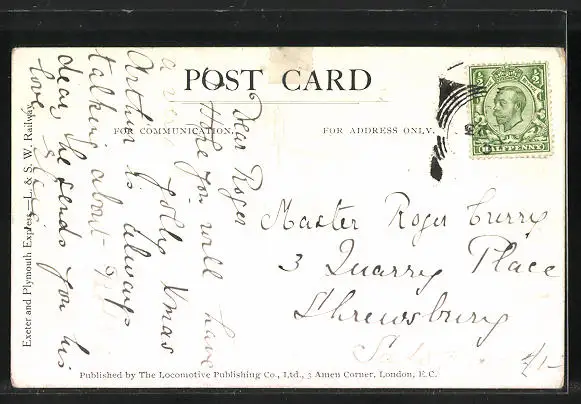 POST CARD
FOR COMMUNICATION.
FOR ADDRESS ONLY.
½ ½
HALFPENNY
Dear Roger
Hope you will have
a very jolly Xmas
Arthur is always
talking about
dear, he sends you his
love
Master Roger Currey
3 Quarry Place
Shrewsbury
Exeter and Plymouth Express—L. & S. W. Railway.
Published by The Locomotive Publishing Co., Ltd., 3 Amen Corner, London, E.C.